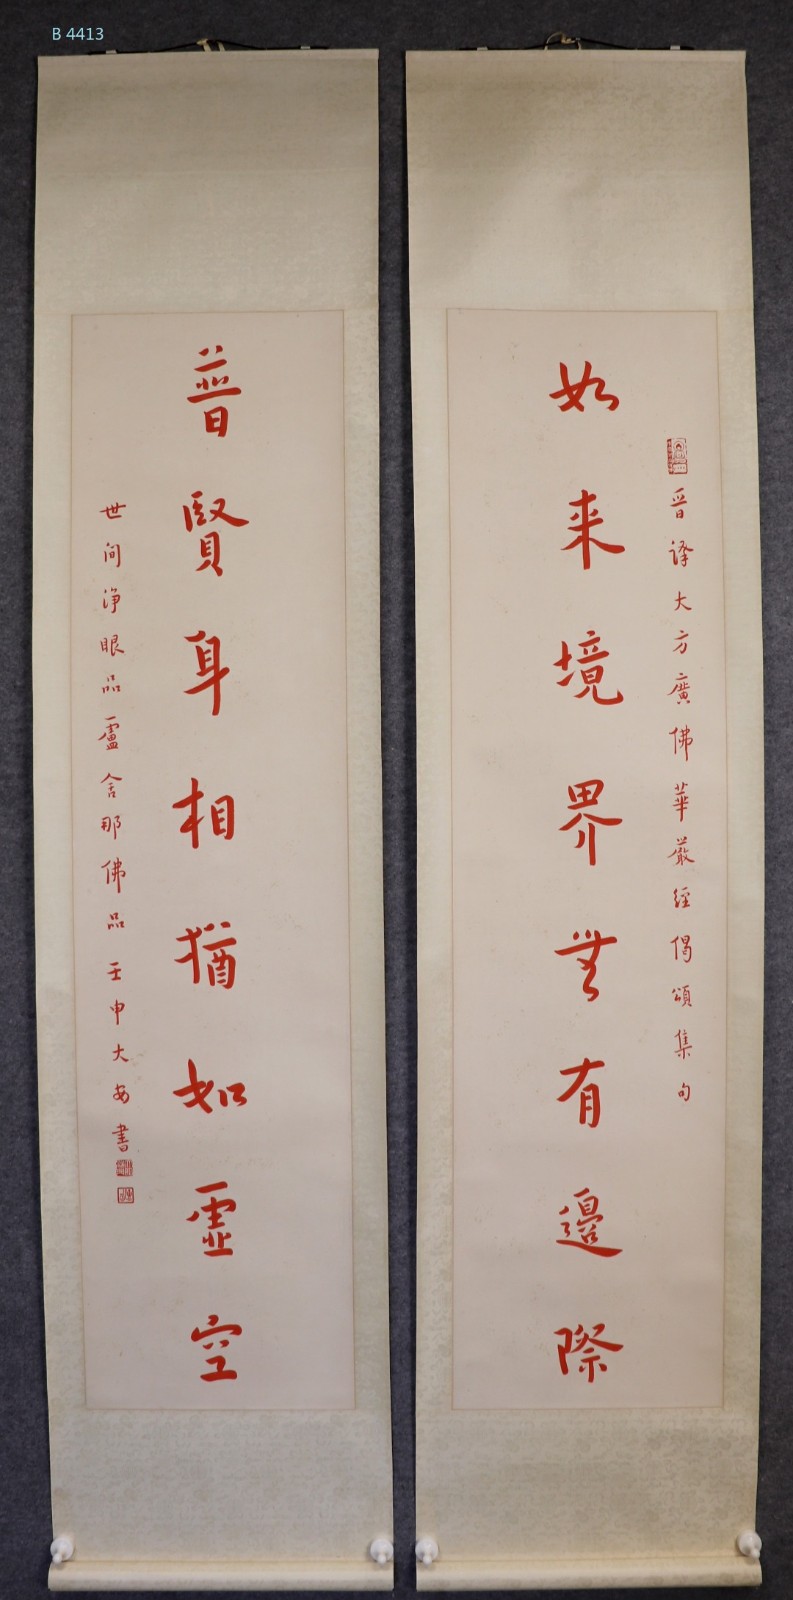 B 4413
晉譯大方廣佛華嚴經偈頌集句
如來境界無有邊際
普賢身相猶如虛空
世间淨眼品盧舍那佛品 壬申大安書